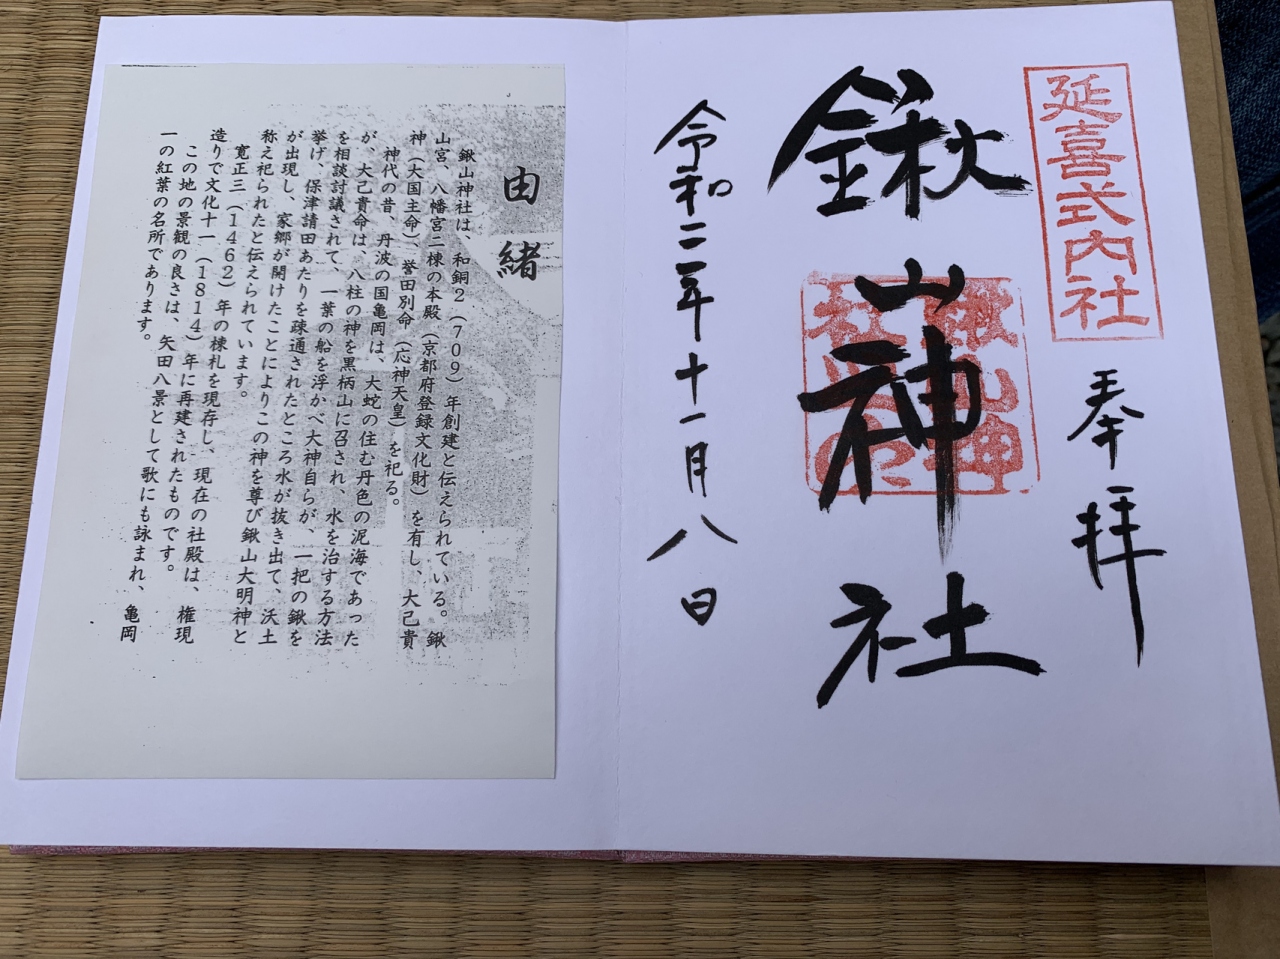 延喜式内社
奉拝
鍬山神社
鍬山神
社之印
令和二年十一月八日
由緒
鍬山神社は、和銅２（７０９）年創建と伝えられている。鍬
山宮、八幡宮二棟の本殿（京都府登録文化財）を有し、大己貴
神（大国主命）、誉田別命（応神天皇）を祀る。
神代の昔、丹波の国亀岡は、大蛇の住む丹色の泥海であった
が、大己貴命は、八柱の神を黒柄山に召され、水を治する方法
を相談討議されて、一葉の船を浮かべ大神自らが、一把の鍬を
挙げ、保津請田あたりを疎通されたところ水が抜き出て、沃土
が出現し、家郷が開けたことによりこの神を尊び鍬山大明神と
称え祀られたと伝えられています。
寛正三（１４６２）年の棟札を現存し、現在の社殿は、権現
造りで文化十一（１８１４）年に再建されたものです。
この地の景観の良さは、矢田八景として歌にも詠まれ、亀岡
一の紅葉の名所であります。